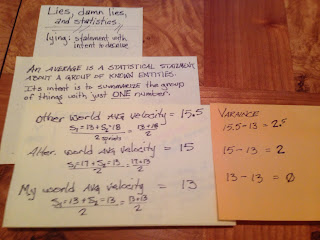 Lies, damn lies,
and statistics.
lying: statement with
intent to deceive
AN AVERAGE IS A STATISTICAL STATEMENT,
ABOUT A GROUP OF KNOWN ENTITIES.
Its intent is to summarize the group
of things with just ONE number.
Other World AVG Velocity = 15.5
S₁=13+S₂=18 = 13+18
2 sprints 2
Alter. World AVG Velocity = 15
S₁=17+S₂=13 = 17+13
2 2
My World AVG Velocity = 13
S₁=13+S₂=13 = 13+13
2 2
VARIANCE
15.5-13 = 2.5
15-13 = 2
13-13 = 0